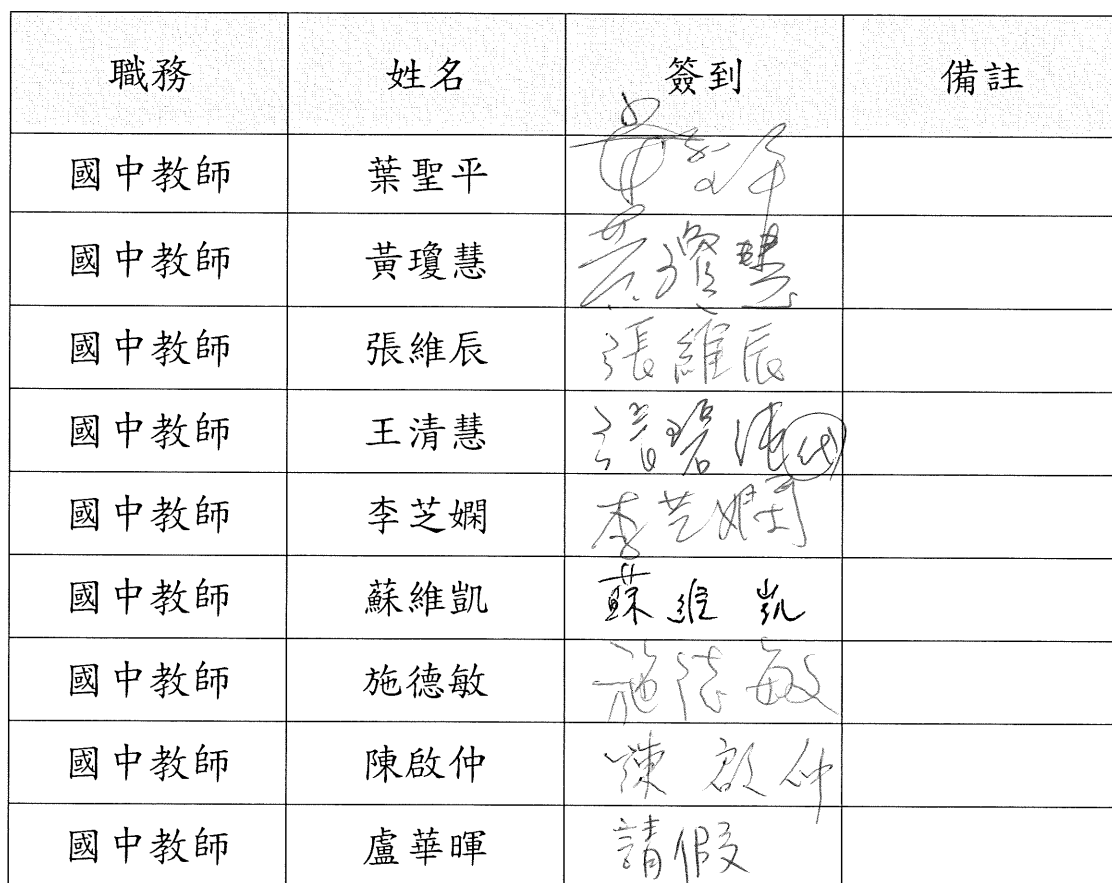 職務 姓名 簽到 備註
國中教師 葉聖平 葉聖平
國中教師 黃瓊慧 黃瓊慧
國中教師 張維辰 張維辰
國中教師 王清慧 代
國中教師 李芝嫻 李芝嫻
國中教師 蘇維凱 蘇維凱
國中教師 施德敏 施德敏
國中教師 陳啟仲 陳啟仲
國中教師 盧華暉 請假